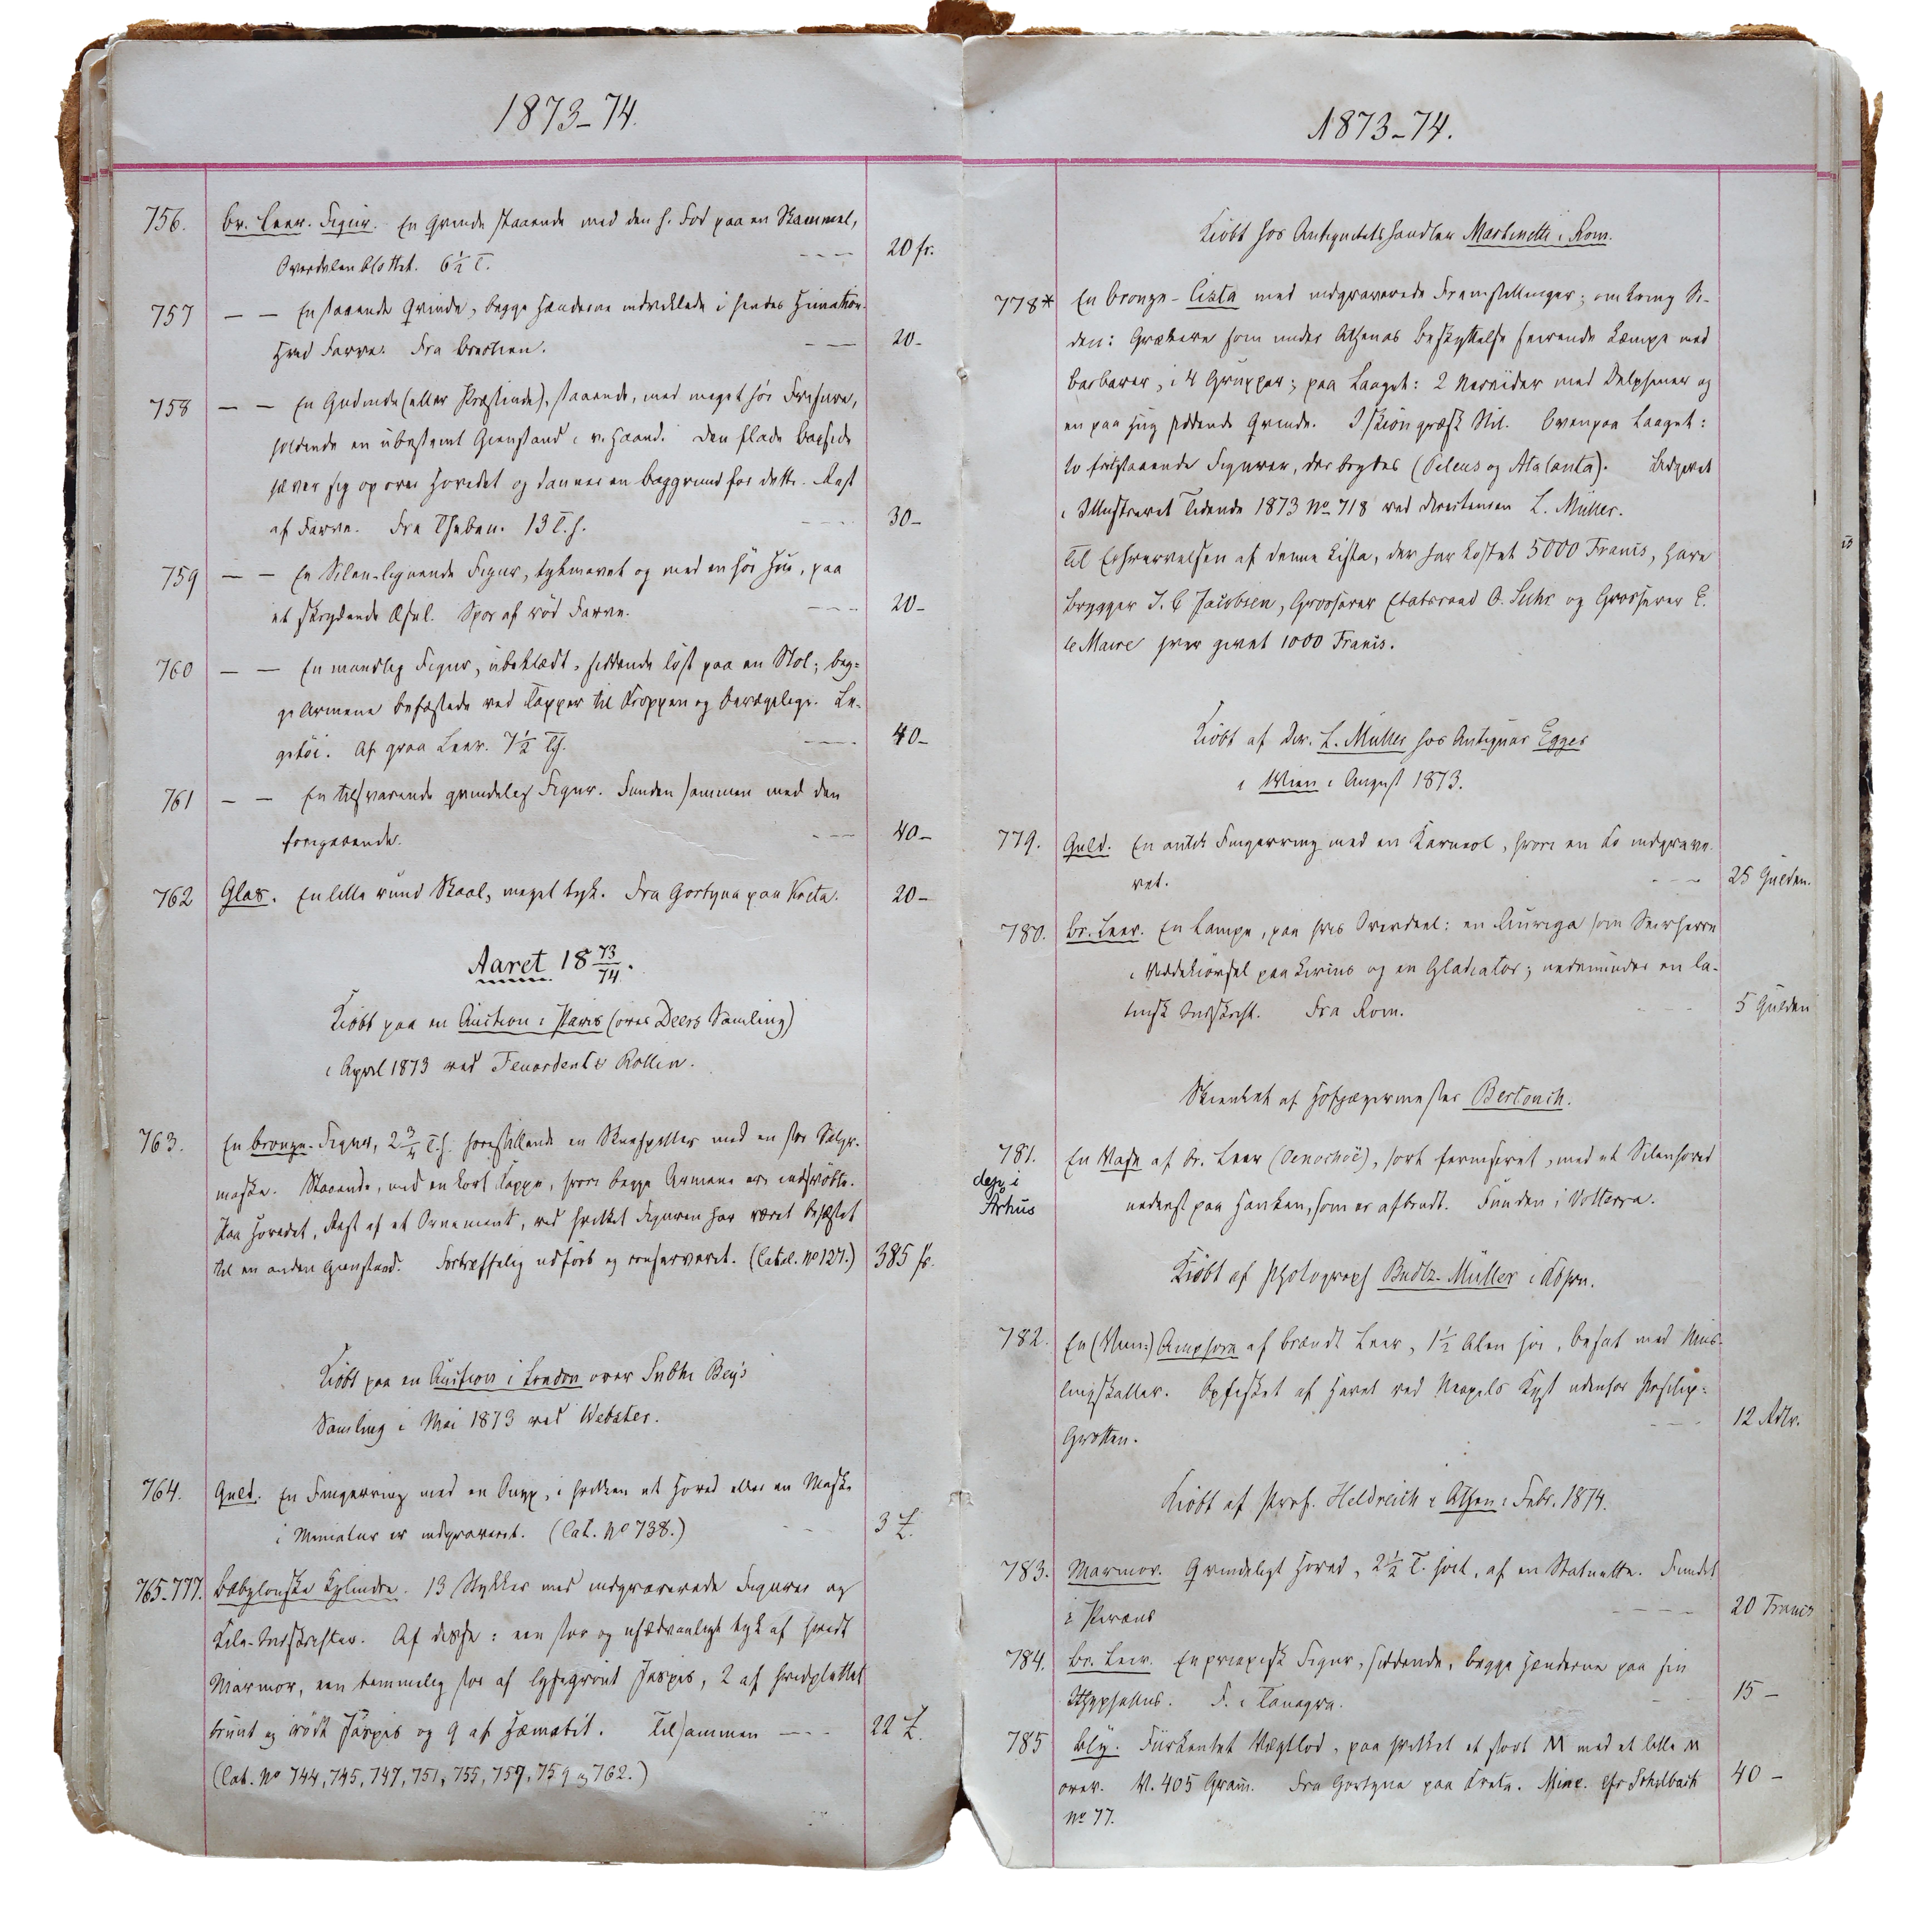 1873-74.
756. br. Leer. Figur. En Qvinde staaende med den h. Fod paa en Skammel,
Overdelen blottet. 6½ T. ---- 20 fr.
757 — — En staaende Qvinde, begge Hænderne indviklede i hendes Himation.
Hvid Farve. Fra Boeotien. --- 20-
758 — — En Gudinde (eller Præstinde), staaende, med meget høi Frisure,
holdende en ubestemt Gienstand i v. Haand. Den flade Bagside
hæver sig op over Hovedet og danner en Baggrund for dette. Rest
af Farve. Fra Theben. 13 T. h. ---- 30-
759 — — En Silen-lignende Figur, tykmavet og med en høi Hue, paa
et skrydende Æsel. Spor af rød Farve. ---- 20-
760 — — En mandlig Figur, ubeklædt, siddende løst paa en Stol; beg=
ge Armene befæstede ved Tapper til Kroppen og bevægelige. Le-
getøi. Af graa Leer. 7½ T.h. ---- 40-
761 — — En tilsvarende qvindelig Figur. Funden sammen med den
foregaaende. ---- 40-
762 Glas. En lille rund Skaal, meget tyk. Fra Gortyna paa Kreta. 20-
Aaret 18 73/74.
Kiøbt paa en Auction i Paris (over Deers Samling)
i April 1873 ved Feuardent & Rollin.
763. En Bronze-Figur, 2¾ T.h. forestillende en Skuespiller med en stor Satyr-
maske. Staaende, med en kort Kappe, hvori begge Armene ere indsvøbte.
Paa Hovedet, Rest af et Ornament, ved hvilket Figuren har været befæstet
til en anden Gienstand. Fortræffelig udført og conserveret. (Catal. No 127.) 385 fr.
Kiøbt paa en Auction i London over Subhi Bey's
Samling i Mai 1873 ved Webster.
764. Guld. En Fingerring med en Onyx, i hvilken et Hoved eller en Maske
i Miniatur er indgraveret. (Cat. No 738.) -- 3 £.
765-777. Babylonske Cylindre. 13 Stykker med indgraverede Figurer og
Kile-Indskrifter. Af disse: een stor og usædvanligt tyk af hvidt
Marmor, een temmelig stor af lysegrønt Jaspis, 2 af hvidplettet
brunt og rødt Jaspis og 9 af Hæmatit. Tilsammen ---- 22 £.
(Cat. No 744, 745, 747, 751, 755, 757, 759 og 762.)
1873-74.
Kiøbt hos Antiquitetshandler Martinetti i Rom.
778* En Bronze-Cista med indgraverede Fremstillinger; omkring Si-
den: Grækere som under Athenas Beskyttelse seirende kæmpe med
Barbarer, i 4 Grupper; paa Laaget: 2 Nereider med Delphiner og
en paa Hug siddende Qvinde. I skiøn græsk Stil. Ovenpaa Laaget:
to fritstaaende Figurer, der brydes (Peleus og Atalanta). Udgivet
i Illustreret Tidende 1873 No 718 ved Directeuren L. Müller.
Til Erhvervelsen af denne Cista, der har kostet 5000 Francs, have
Brygger J. C Jacobsen, Grosserer Etatsraad O. Suhr og Grosserer E.
le Maire hver givet 1000 Francs.
Kiøbt af Dir. L. Müller hos Antiquar Egger
i Wien i August 1873.
779. Guld. En antik Fingerring med en Karneol, hvori en Ko indgrave-
ret. --- 25 Gulden.
780. Br. Leer. En Lampe, paa hvis Overdeel: en Auriga som Seierherre
i Væddekiørsel paa Circus og en Gladiator; nedenunder en la-
tinsk Indskrift. Fra Rom. --- 5 Gulden
Skienket af Hofjægermester Bertouch.
781. En Vase af br. Leer (Oenochoë), sort ferniseret, med et Silenhoved
nederst paa Hanken, som er afbrudt. Funden i Volterra.
dep. i
Århus
Kiøbt af Photograph Budtz-Müller i Kbhvn.
782. En (Viin-) Amphora af brændt Leer, 1½ Alen høi, besat med Mus-
lingskaller. Opfisket af Havet ved Neapels Kyst udenfor Posilip-
Grotten. --- 12 Rdlr.
Kiøbt af Prof. Heldreich i Athen i Febr. 1874.
783. Marmor. Qvindeligt Hoved, 2½ T. høit, af en Statuette. Fundet
i Piræus ---- 20 Francs
784. Br. Leer. En priapisk Figur, siddende, begge Hænderne paa sin
Ithyphallus. F. i Tanagra. - 15 —
785 Bly. Fiirkantet Vægtlod, paa hvilket et stort M med et lille M
over. V. 405 Gram. Fra Gortyna paa Kreta. Mine. cfr Schilbach 40 —
No 77.